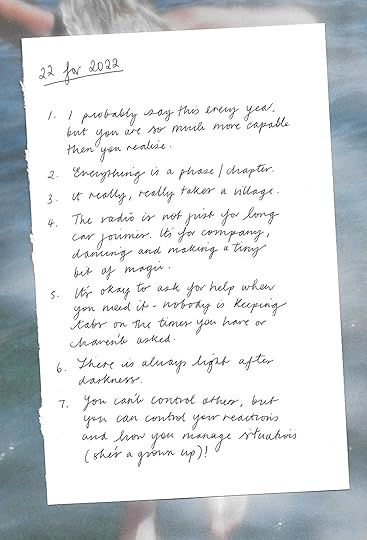 22 for 2022
1. I probably say this every year,
but you are so much more capable
then you realise.
2. Everything is a phase / chapter.
3. It really, really takes a village.
4. The radio is not just for long
car journies. It's for company,
dancing and making a tiny
bit of magic.
5. It's okay to ask for help when
you need it - nobody is keeping
tabs on the times you have or
haven't asked.
6. There is always light after
darkness.
7. You can't control others, but
you can control your reactions
and how you manage situations
(she's a grown up)!